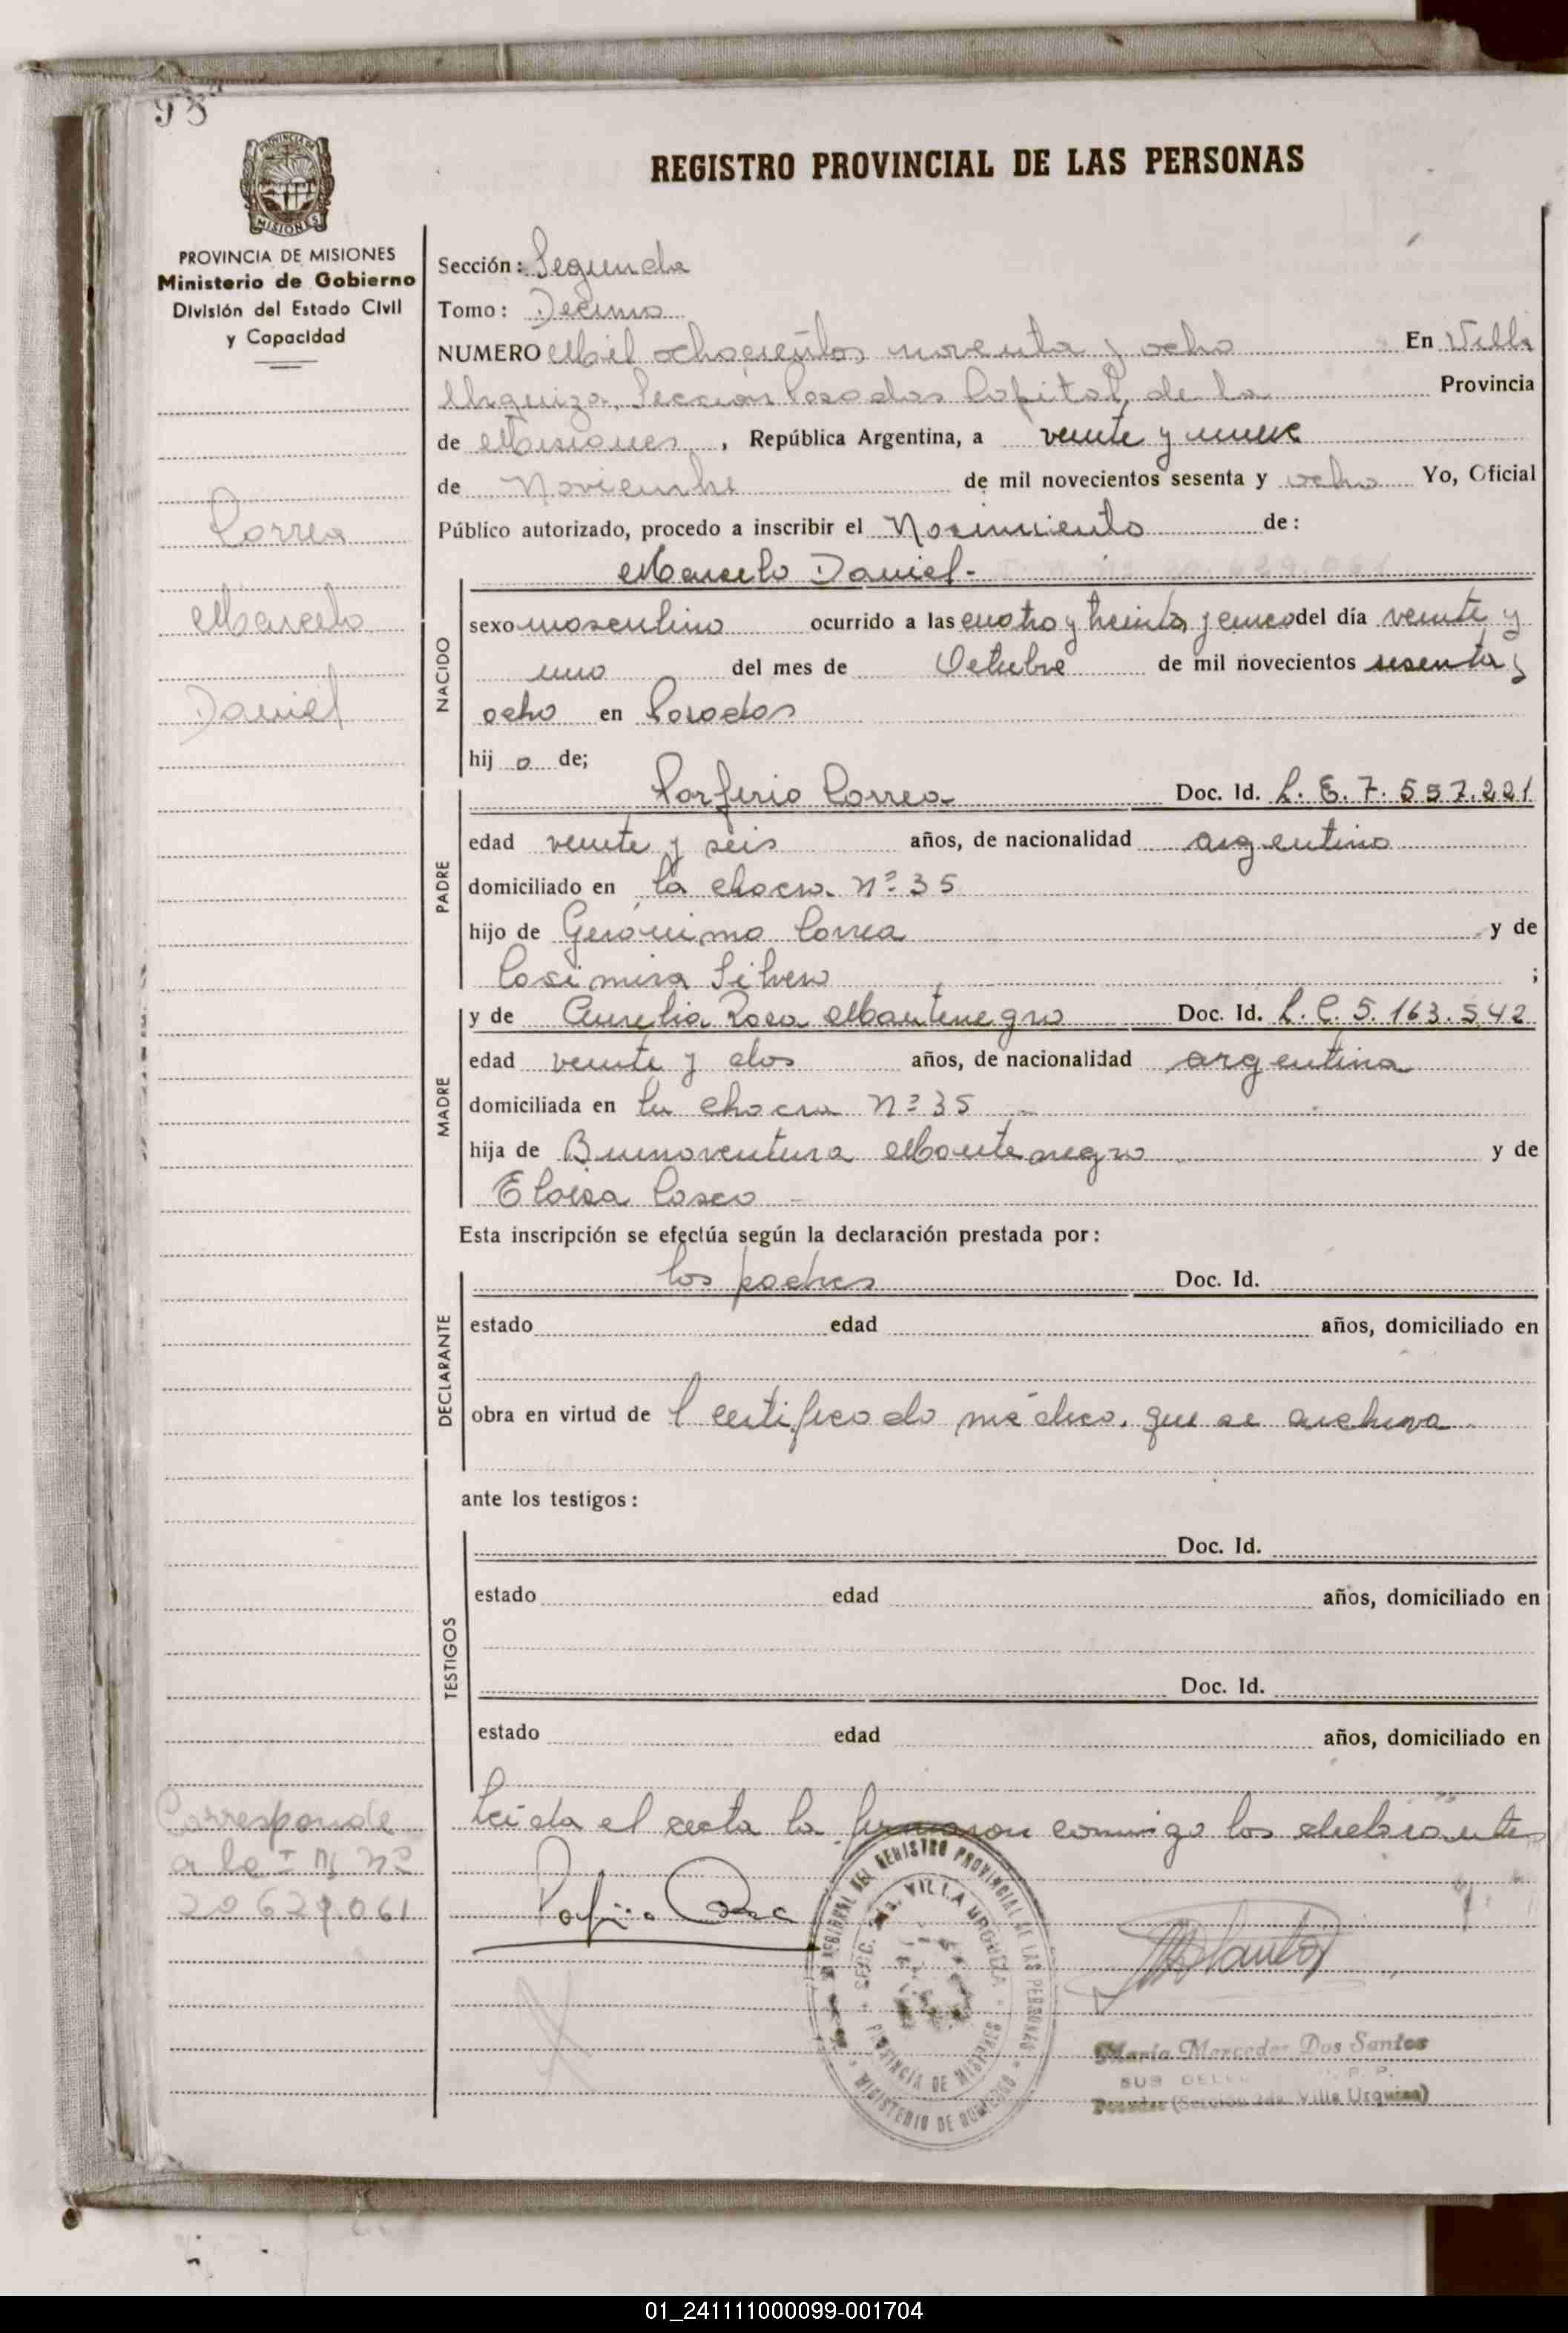 98
PROVINCIA DE MISIONES
Ministerio de Gobierno
División del Estado Civil
y Capacidad
REGISTRO PROVINCIAL DE LAS PERSONAS
Sección: Segunda
Tomo: Decimo
NUMERO Mil ochocientos noventa y ocho En Villa
Urquiza, Sección Posadas Capital, de la Provincia
de Misiones, República Argentina, a veinte y nueve
de Noviembre de mil novecientos sesenta y ocho Yo, Oficial
Público autorizado, procedo a inscribir el Nacimiento de:
Marcelo Daniel-
Correa
Marcelo
Daniel
NACIDO
sexo masculino ocurrido a las cuatro y treinta y cinco del día veinte y
uno del mes de Octubre de mil novecientos sesenta y
ocho en Posadas
hij o de;
PADRE
Porferio Correa Doc. Id. L. E. 7. 557.221
edad veinte y seis años, de nacionalidad argentino
domiciliado en la chacra nº 35
hijo de Gerónimo Correa y de
Casimira Silvero ;
MADRE
y de Aurelia Rosa Montenegro Doc. Id. L. C. 5. 163.542
edad veinte y dos años, de nacionalidad argentina
domiciliada en la chacra nº 35
hija de Buenaventura Montenegro y de
Eloisa -
Esta inscripción se efectúa según la declaración prestada por:
DECLARANTE
los padres Doc. Id.
estado edad años, domiciliado en
obra en virtud de l certificado médico, que se archiva
ante los testigos:
TESTIGOS
Doc. Id.
estado edad años, domiciliado en
Doc. Id.
estado edad años, domiciliado en
Leida el acta la firmaron conmigo los declarantes
Corresponde
a la M nº
20 629.061
REGISTRO PROVINCIAL DE LAS PERSONAS
SECC. 2da. VILLA URQUIZA
PROVINCIA DE MISIONES
MINISTERIO DE GOBIERNO
María Mercedes Dos Santos
SUB DELEG
Posadas (Sección 2da. Villa Urquiza)
01_241111000099-001704